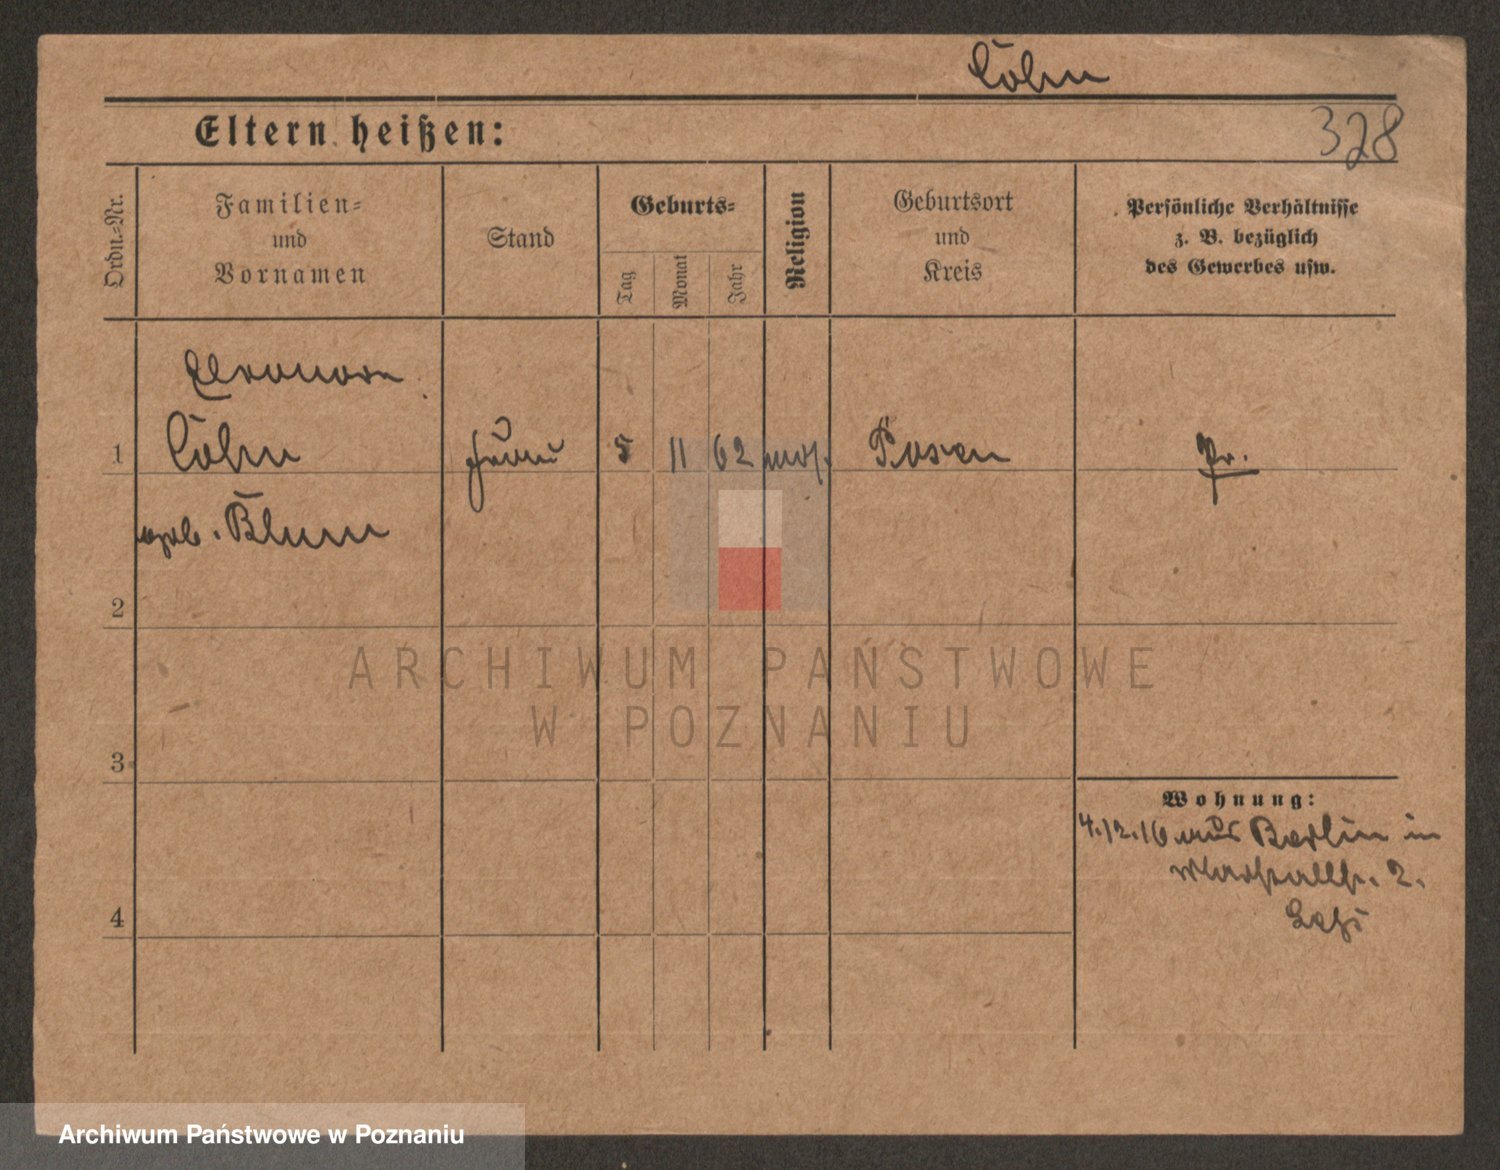 Cohn
Eltern heißen:
328
Ordn.-Nr.
Familien-
und
Vornamen
Stand
Geburts-
Tag
Monat
Jahr
Religion
Geburtsort
und
Kreis
Persönliche Verhältnisse
z. B. bezüglich
des Gewerbes usw.
Eleonore
1 Cohn Frau 5 11 62 mos. Posen Pr.
geb. Blum
2
ARCHIWUM PAŃSTWOWE
W POZNANIU
3
Wohnung:
4.12.16 aus Berlin in
2.
4
Archiwum Państwowe w Poznaniu